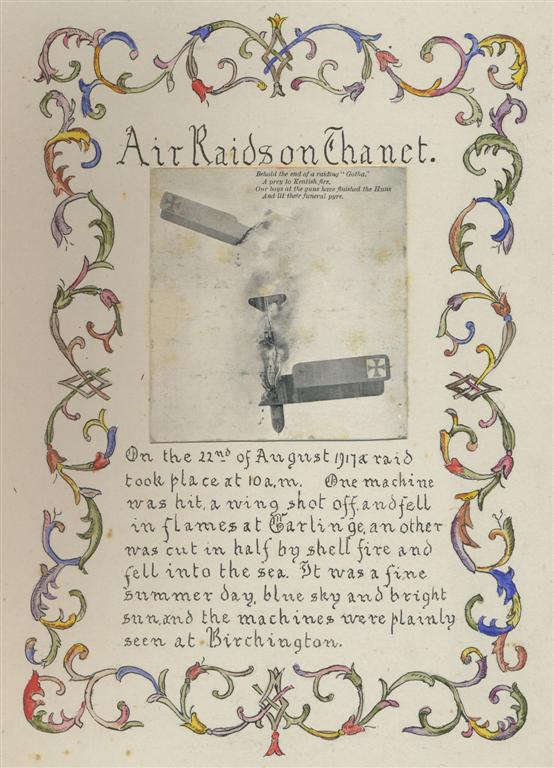 Air Raids on Thanet.
Behold the end of a raiding "Gotha,"
A prey to Kentish fire,
Our boys at the guns have finished the Huns
And lit their funeral pyre.
On the 22nd of August 1917 a raid
took place at 10 a.m. One machine
was hit, a wing shot off, and fell
in flames at Garlinge, an other
was cut in half by shell fire and
fell into the sea. It was a fine
summer day, blue sky and bright
sun, and the machines were plainly
seen at Birchington.